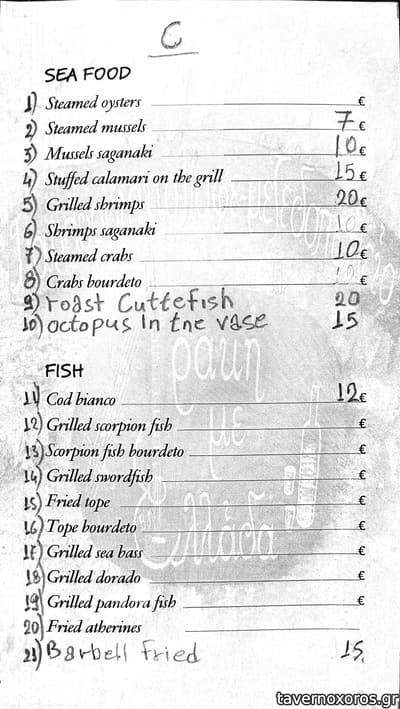 6
SEA FOOD
1) Steamed oysters €
2) Steamed mussels 7 €
3) Mussels saganaki 10 €
4) Stuffed calamari on the grill 15 €
5) Grilled shrimps 20 €
6) Shrimps saganaki €
7) Steamed crabs 10 €
8) Crabs bourdeto €
9) roast Cuttefish 20
10) octopus in tne vase 15
FISH
11) Cod bianco 12 €
12) Grilled scorpion fish €
13) Scorpion fish bourdeto €
14) Grilled swordfish €
15) Fried tope €
16) Tope bourdeto €
17) Grilled sea bass €
18) Grilled dorado €
19) Grilled pandora fish €
20) Fried atherines
21) Barbell Fried 15
tavernoxoros.gr